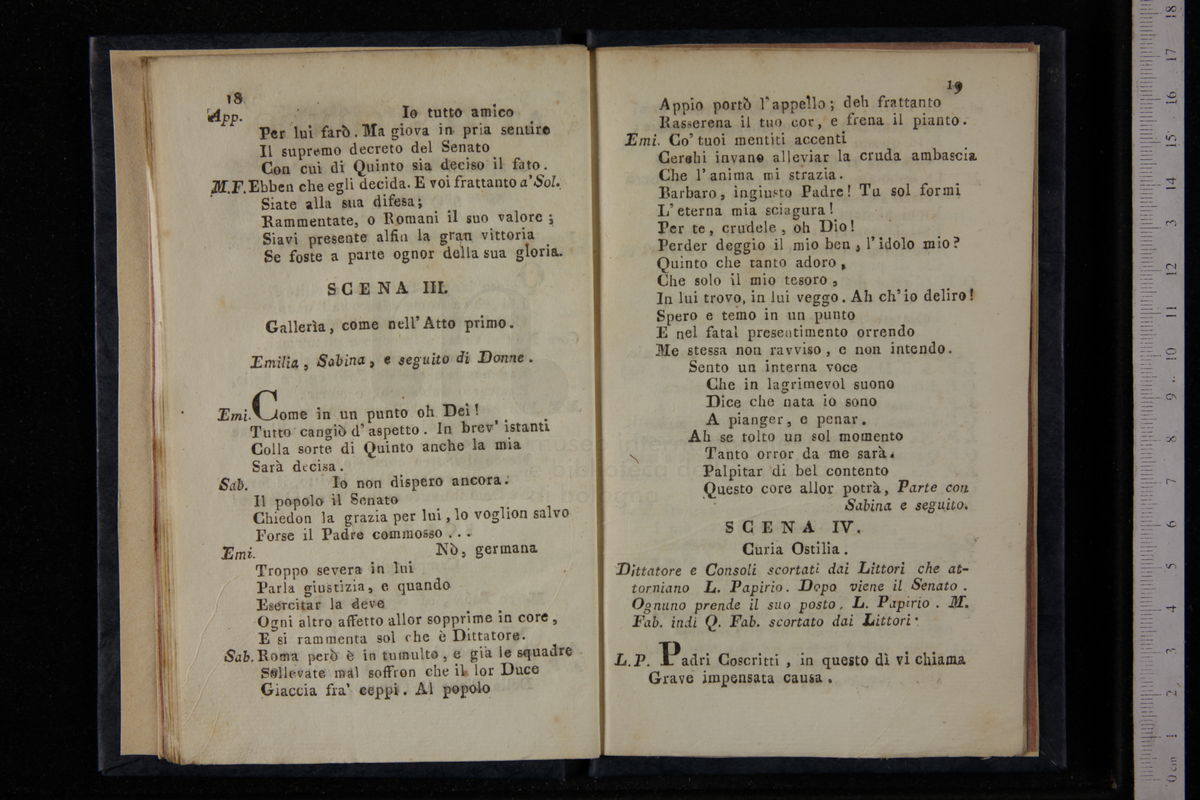 18
App. Io tutto amico
Per lui farò. Ma giova in pria sentire
Il supremo decreto del Senato
Con cui di Quinto sia deciso il fato.
M.F. Ebben che egli decida. E voi frattanto a' Sol.
Siate alla sua difesa;
Rammentate, o Romani il suo valore;
Siavi presente alfin la gran vittoria
Se foste a parte ognor della sua gloria.
SCENA III.
Gallerìa, come nell' Atto primo.
Emilia, Sabina, e seguito di Donne.
Emi. Come in un punto oh Dei!
Tutto cangiò d' aspetto. In brev' istanti
Colla sorte di Quinto anche la mia
Sarà decisa.
Sab. Io non dispero ancora.
Il popolo il Senato
Chiedon la grazia per lui, lo voglion salvo
Forse il Padre commosso ...
Emi. Nò, germana
Troppo severa in lui
Parla giustizia, e quando
Esercitar la deve
Ogni altro affetto allor sopprime in core,
E si rammenta sol che è Dittatore.
Sab. Roma però è in tumulto, e già le squadre
Sollevate mal soffron che il lor Duce
Giaccia fra' ceppi. Al popolo
19
Appio portò l' appello; deh frattanto
Rasserena il tuo cor, e frena il pianto.
Emi. Co' tuoi mentiti accenti
Cerchi invano alleviar la cruda ambascia
Che l' anima mi strazia.
Barbaro, ingiusto Padre! Tu sol formi
L' eterna mia sciagura!
Per te, crudele, oh Dio!
Perder deggio il mio ben, l' idolo mio?
Quinto che tanto adoro,
Che solo il mio tesoro,
In lui trovo, in lui veggo. Ah ch' io deliro!
Spero e temo in un punto
E nel fatal presentimento orrendo
Me stessa non ravviso, e non intendo.
Sento un interna voce
Che in lagrimevol suono
Dice che nata io sono
A pianger, e penar.
Ah se tolto un sol momento
Tanto orror da me sarà.
Palpitar di bel contento
Questo core allor potrà, Parte con
Sabina e seguito.
SCENA IV.
Curia Ostilia.
Dittatore e Consoli scortati dai Littori che at-
torniano L. Papirio. Dopo viene il Senato.
Ognuno prende il suo posto. L. Papirio. M.
Fab. indi Q. Fab. scortato dai Littori.
L.P. Padri Coscritti, in questo dì vi chiama
Grave impensata causa.
museo inter
e biblioteca d
di bologna
0 cm 1 2 3 4 5 6 7 8 9 10 11 12 3 14 15 16 17 18